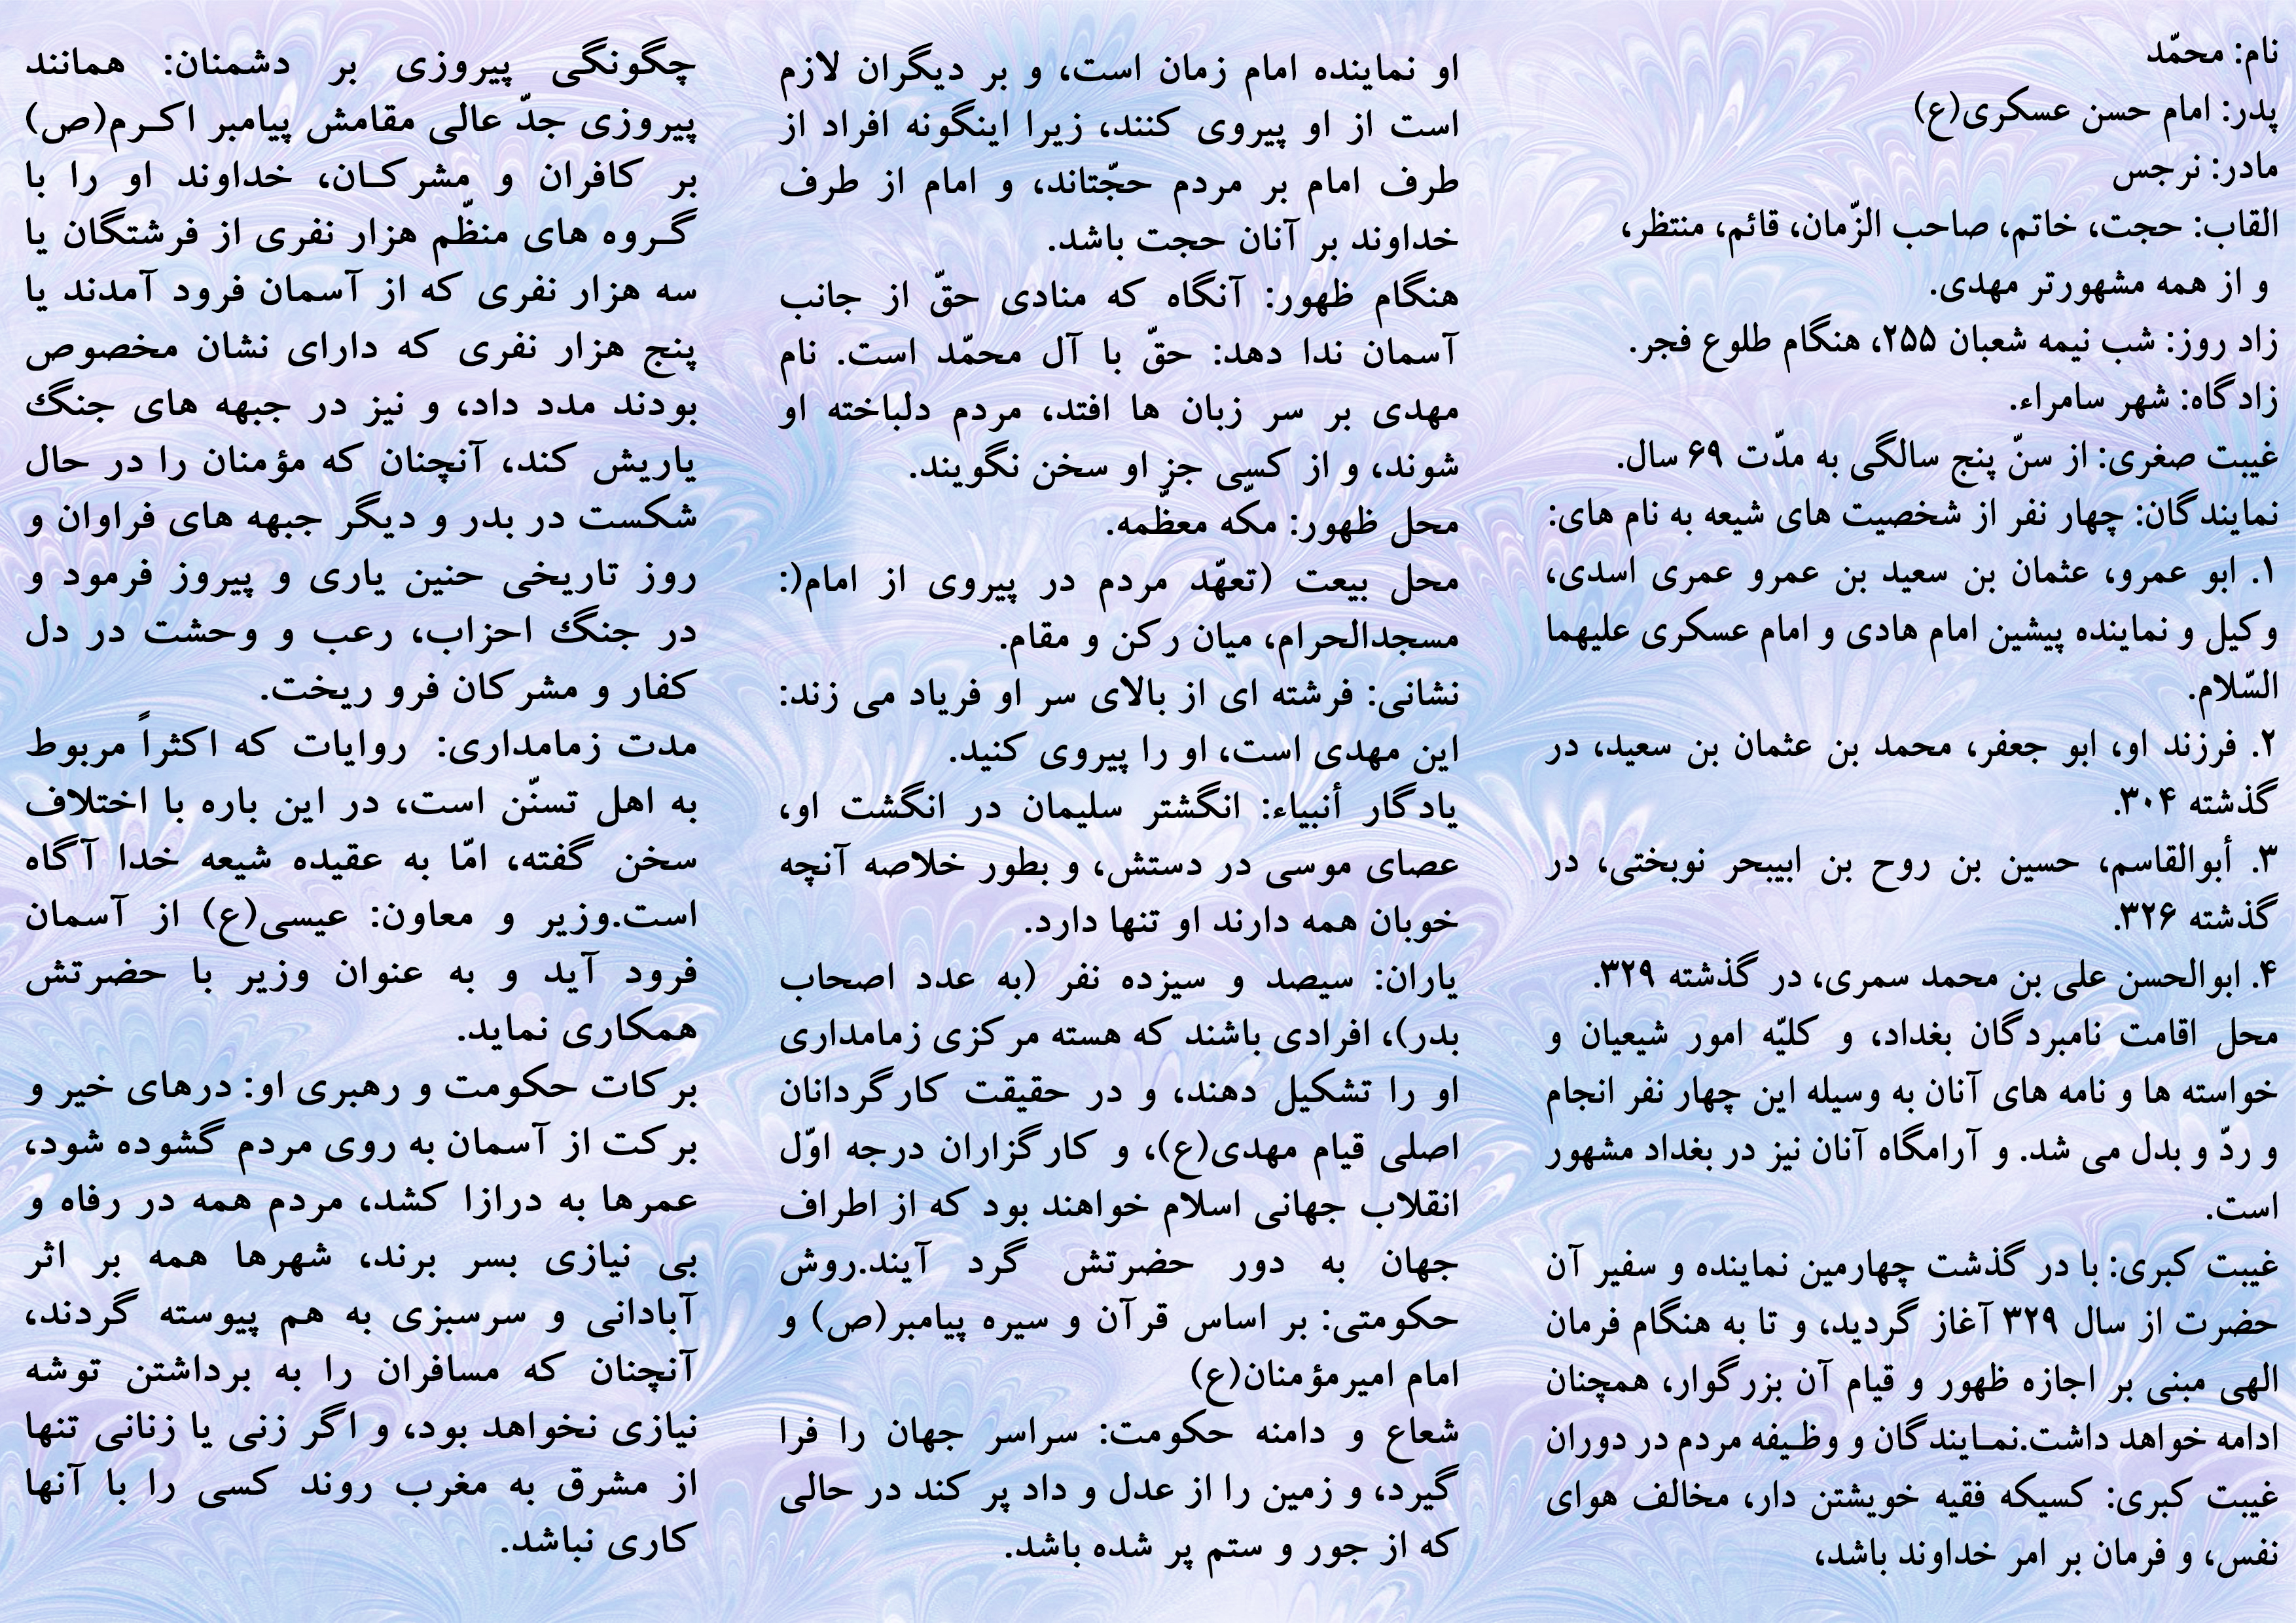 نام: محمّد
پدر: امام حسن عسکری(ع)
مادر: نرجس
القاب: حجت، خاتم، صاحب الزّمان، قائم، منتظر،
و از همه مشهورتر مهدی.
زاد روز: شب نیمه شعبان ۲۵۵، هنگام طلوع فجر.
زادگاه: شهر سامراء.
غیبت صغری: از سنّ پنج سالگی به مدّت ۶۹ سال.
نمایندگان: چهار نفر از شخصیت های شیعه به نام های:
۱. ابو عمرو، عثمان بن سعید بن عمرو عمری اسدی،
وکیل و نماینده پیشین امام هادی و امام عسکری علیهما
السّلام.
۲. فرزند او، ابو جعفر، محمد بن عثمان بن سعید، در
گذشته ۳۰۴.
۳. أبوالقاسم، حسین بن روح بن ابیبحر نوبختی، در
گذشته ۳۲۶.
۴. ابوالحسن علی بن محمد سمری، در گذشته ۳۲۹.
محل اقامت نامبردگان بغداد، و کلیّه امور شیعیان و
خواسته ها و نامه های آنان به وسیله این چهار نفر انجام
و ردّ و بدل می شد. و آرامگاه آنان نیز در بغداد مشهور
است.
غیبت کبری: با در گذشت چهارمین نماینده و سفیر آن
حضرت از سال ۳۲۹ آغاز گردید، و تا به هنگام فرمان
الهی مبنی بر اجازه ظهور و قیام آن بزرگوار، همچنان
ادامه خواهد داشت.نمـایندگان و وظـیفه مردم در دوران
غیبت کبری: کسیکه فقیه خویشتن دار، مخالف هوای
نفس، و فرمان بر امر خداوند باشد،
او نماینده امام زمان است، و بر دیگران لازم
است از او پیروی کنند، زیرا اینگونه افراد از
طرف امام بر مردم حجّتاند، و امام از طرف
خداوند بر آنان حجت باشد.
هنگام ظهور: آنگاه که منادی حقّ از جانب
آسمان ندا دهد: حقّ با آل محمّد است. نام
مهدی بر سر زبان ها افتد، مردم دلباخته او
شوند، و از کسی جز او سخن نگویند.
محل ظهور: مکّه معظّمه.
محل بیعت (تعهّد مردم در پیروی از امام(:
مسجدالحرام، میان رکن و مقام.
نشانی: فرشته ای از بالای سر او فریاد می زند:
این مهدی است، او را پیروی کنید.
یادگار أنبیاء: انگشتر سلیمان در انگشت او،
عصای موسی در دستش، و بطور خلاصه آنچه
خوبان همه دارند او تنها دارد.
یاران: سیصد و سیزده نفر (به عدد اصحاب
بدر)، افرادی باشند که هسته مرکزی زمامداری
او را تشکیل دهند، و در حقیقت کارگردانان
اصلی قیام مهدی(ع)، و کارگزاران درجه اوّل
انقلاب جهانی اسلام خواهند بود که از اطراف
جهان به دور حضرتش گرد آیند.روش
حکومتی: بر اساس قرآن و سیره پیامبر(ص) و
امام امیرمؤمنان(ع)
شعاع و دامنه حکومت: سراسر جهان را فرا
گیرد، و زمین را از عدل و داد پر کند در حالی
که از جور و ستم پر شده باشد.
چگونگی پیروزی بر دشمنان: همانند
پیروزی جدّ عالی مقامش پیامبر اکـرم(ص)
بر کافران و مشرکـان، خداوند او را با
گـروه های منظّم هزار نفری از فرشتگان یا
سه هزار نفری که از آسمان فرود آمدند یا
پنج هزار نفری که دارای نشان مخصوص
بودند مدد داد، و نیز در جبهه های جنگ
یاریش کند، آنچنان که مؤمنان را در حال
شکست در بدر و دیگر جبهه های فراوان و
روز تاریخی حنین یاری و پیروز فرمود و
در جنگ احزاب، رعب و وحشت در دل
کفار و مشرکان فرو ریخت.
مدت زمامداری: روایات که اکثراً مربوط
به اهل تسنّن است، در این باره با اختلاف
سخن گفته، امّا به عقیده شیعه خدا آگاه
است.وزیر و معاون: عیسی(ع) از آسمان
فرود آید و به عنوان وزیر با حضرتش
همکاری نماید.
برکات حکومت و رهبری او: درهای خیر و
برکت از آسمان به روی مردم گشوده شود،
عمرها به درازا کشد، مردم همه در رفاه و
بی نیازی بسر برند، شهرها همه بر اثر
آبادانی و سرسبزی به هم پیوسته گردند،
آنچنان که مسافران را به برداشتن توشه
نیازی نخواهد بود، و اگر زنی یا زنانی تنها
از مشرق به مغرب روند کسی را با آنها
کاری نباشد.